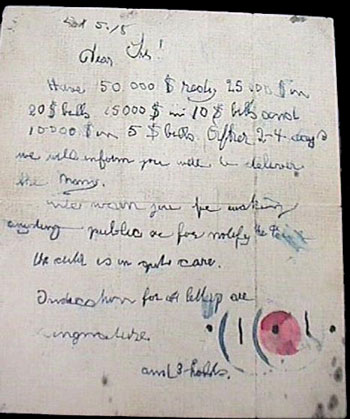 Dear Sir!
Have 50 000 $ redy 25 000 $ in
20 $ bills 15000 $ in 10 $ bills and
10000 $ in 5 $ bills. After 2-4 days
we will inform you were to deliver
the Mony.
warn you for making
anyding public or for notify the
child is in gute care.
for all are
singnature.
and 3 holds.